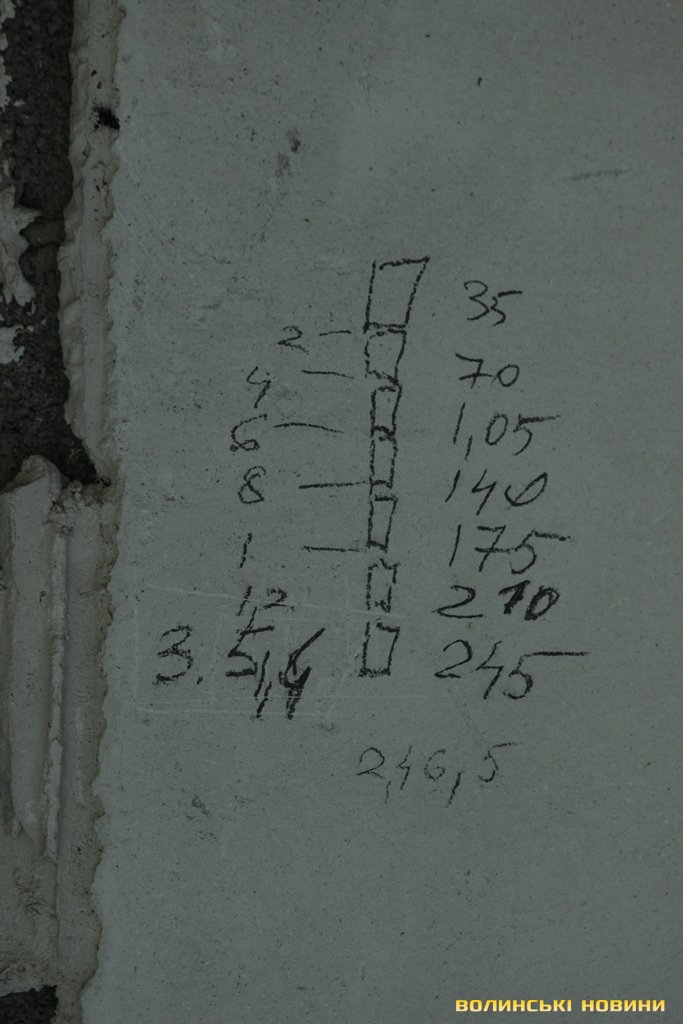 35
2 70
4 1,05
6 140
8 175
1 210
1,2 245
3. 5,4
2,46,5
ВОЛИНСЬКІ НОВИНИ